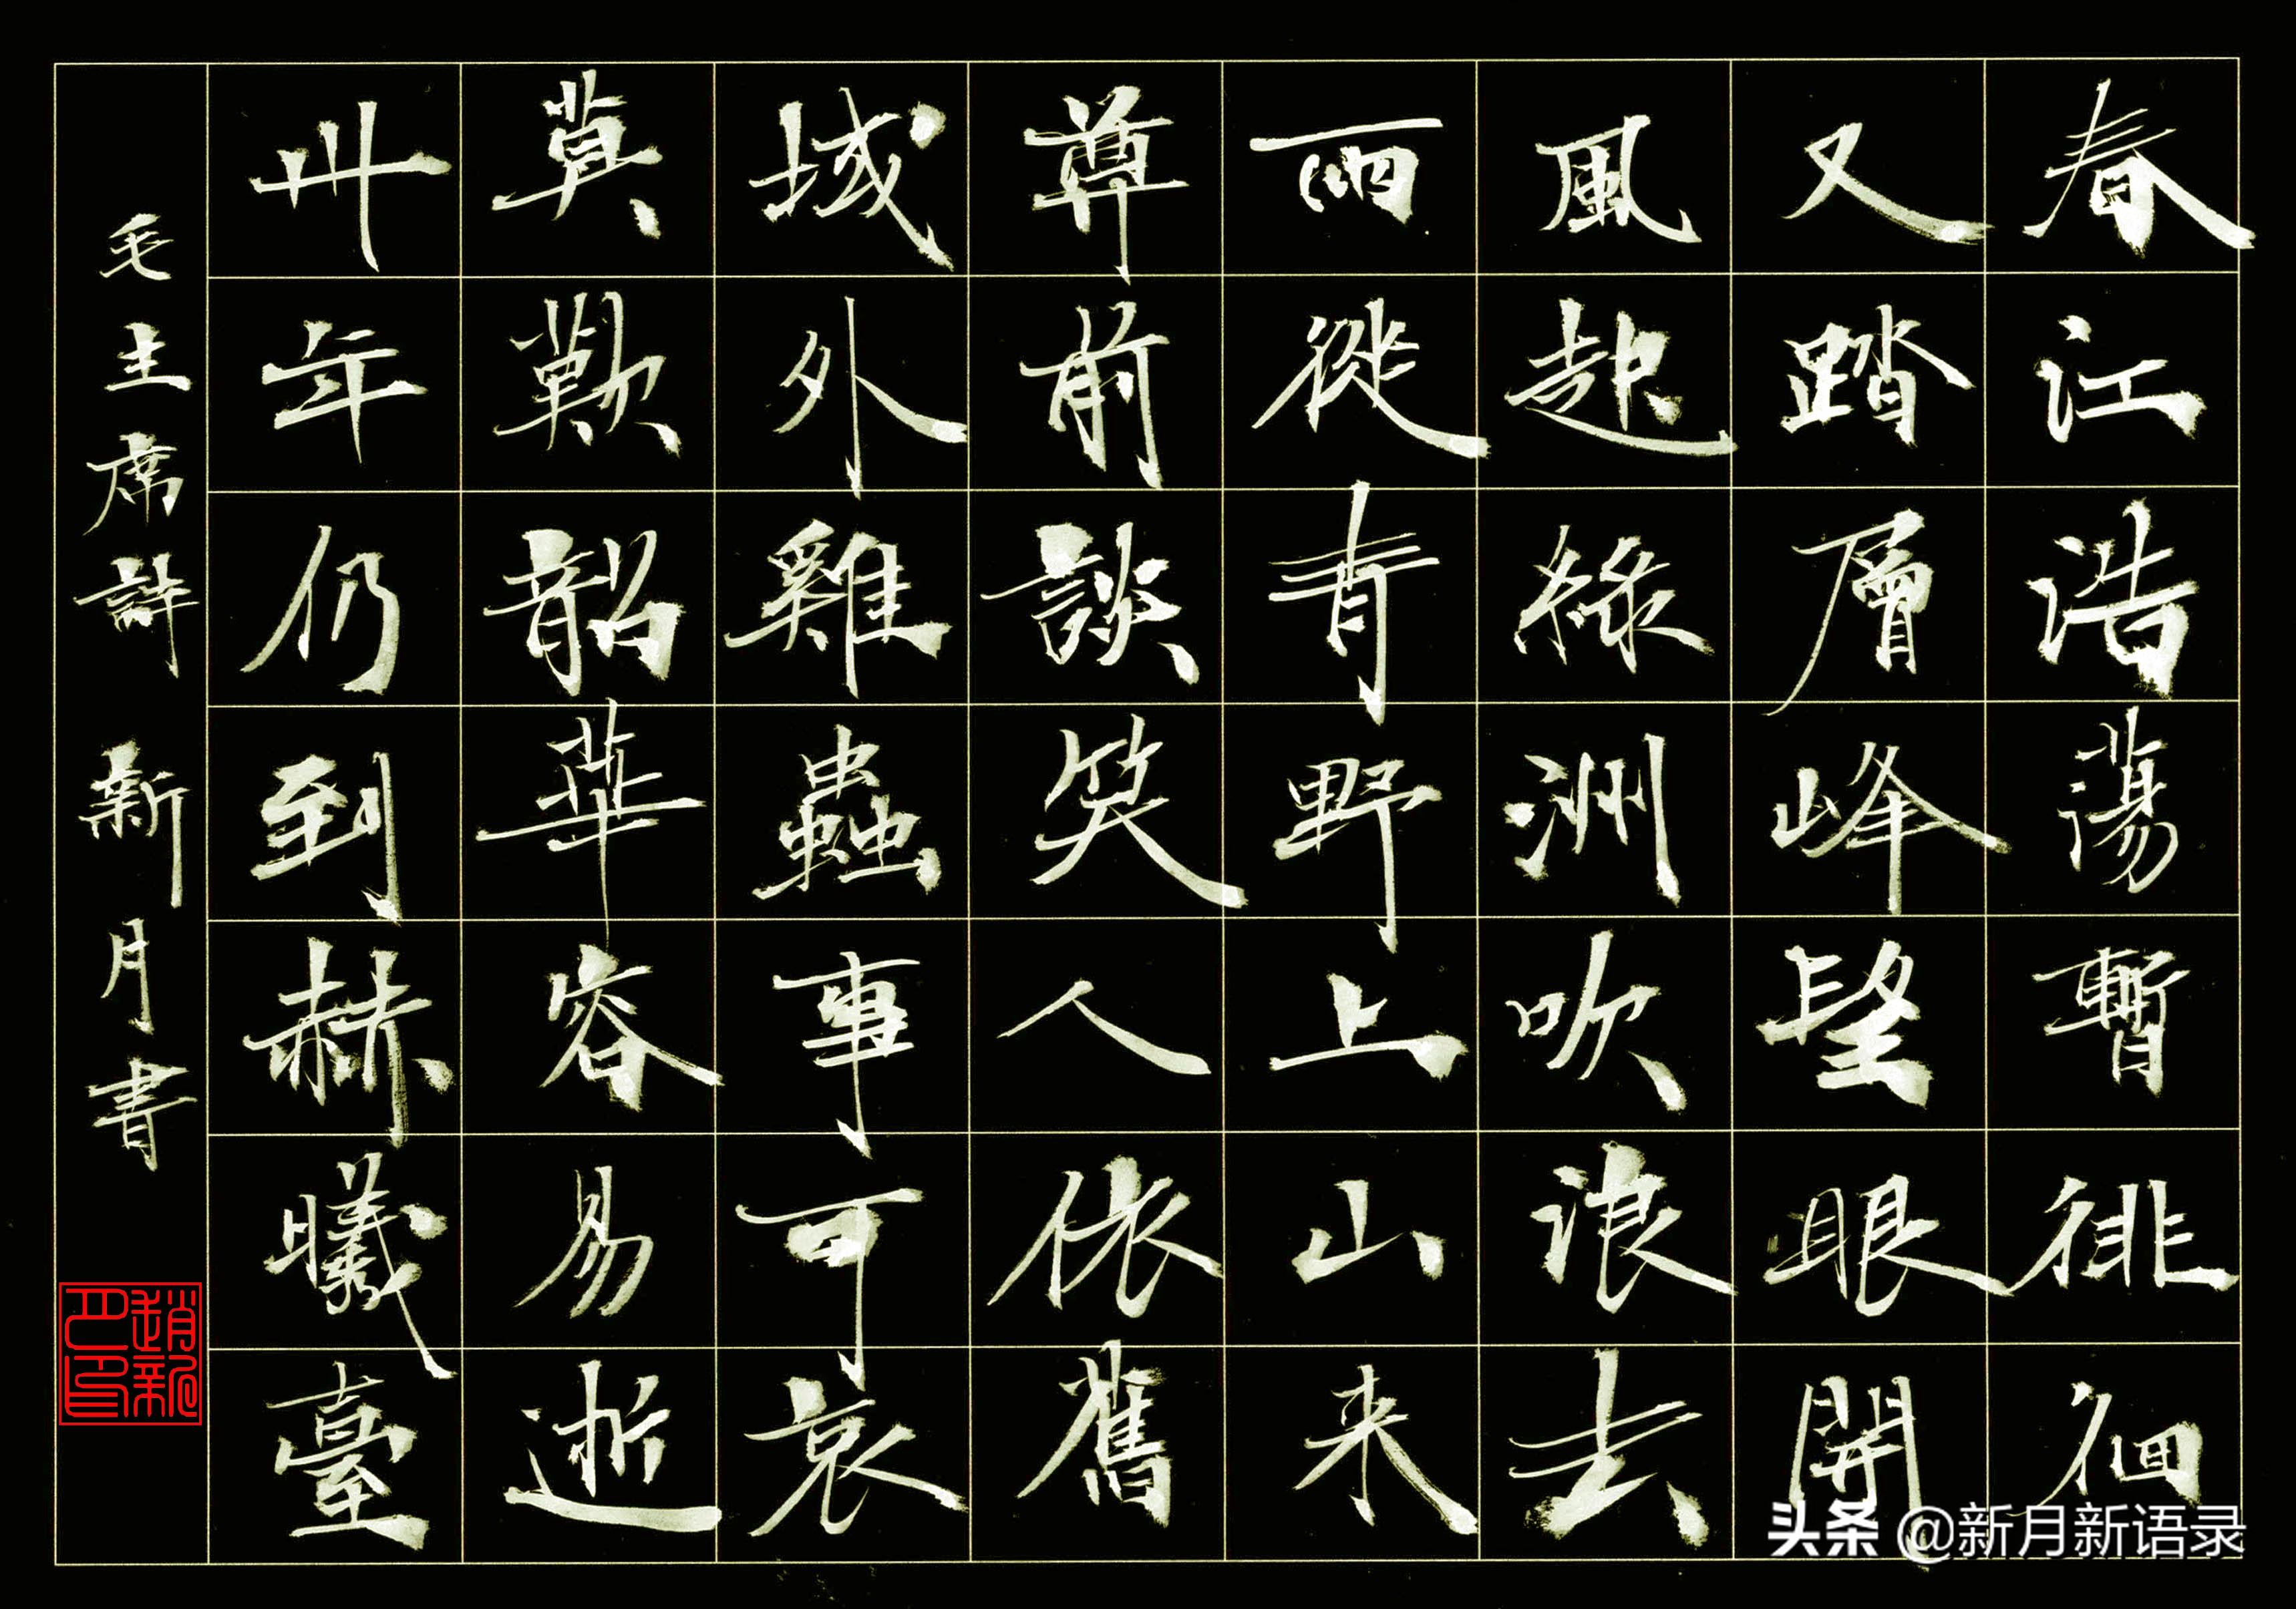 春江浩蕩暫徘徊
又踏層峰望眼開
風起綠洲吹浪去
雨從青野上山来
尊前談笑人依舊
域外雞蟲事可哀
莫歎韶華容易逝
卅年仍到赫曦臺
毛主席詩 新月書
趙新
印
头条 @新月新语录